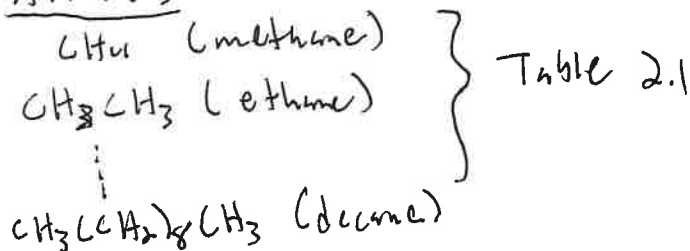 CH4 (methane)
CH3CH3 (ethane)
} Table 2.1
CH3(CH2)8CH3 (decane)